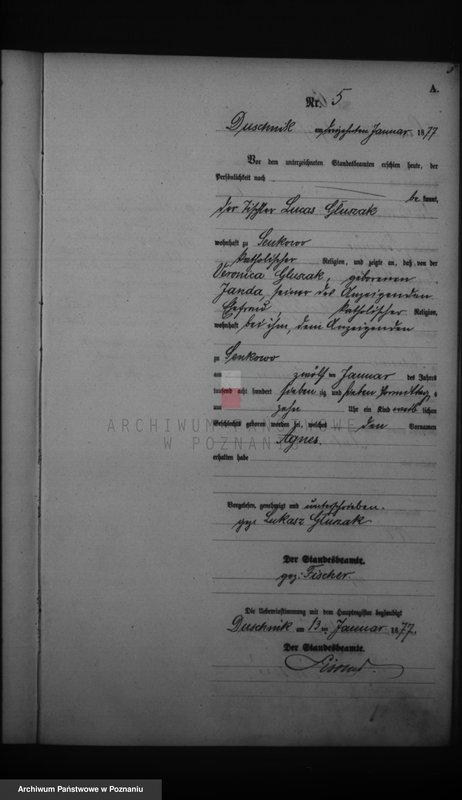 A.
Nr. 5
Duschnik am dreizehnten Januar 1877
Vor dem unterzeichneten Standesbeamten erschien heute, der
Persönlichkeit nach
be kannt,
der Tischler Lucas Gluszak
wohnhaft zu Senkowo
katholischer Religion, und zeigte an, daß von der
Veronica Gluszak, geborenen
Janda, seiner des Anzeigenden
Ehefrau, katholischer Religion,
wohnhaft bei ihm, dem Anzeigenden
zu Senkowo
am zwölf ten Januar des Jahres
tausend acht hundert sieben zig und sieben Vormittags
um zehn Uhr ein Kind weib lichen
Geschlechts geboren worden sei, welches den Vornamen
Agnes
erhalten habe
ARCHIWUM PAŃSTWOWE
W POZNANIU
Vorgelesen, genehmigt und unterschrieben.
gez. Lukasz Gluszak
Der Standesbeamte.
gez: Fischer.
Die Uebereinstimmung mit dem Hauptregister beglaubigt
Duschnik am 13 ten Januar 1877.
Der Standesbeamte.
Archiwum Państwowe w Poznaniu